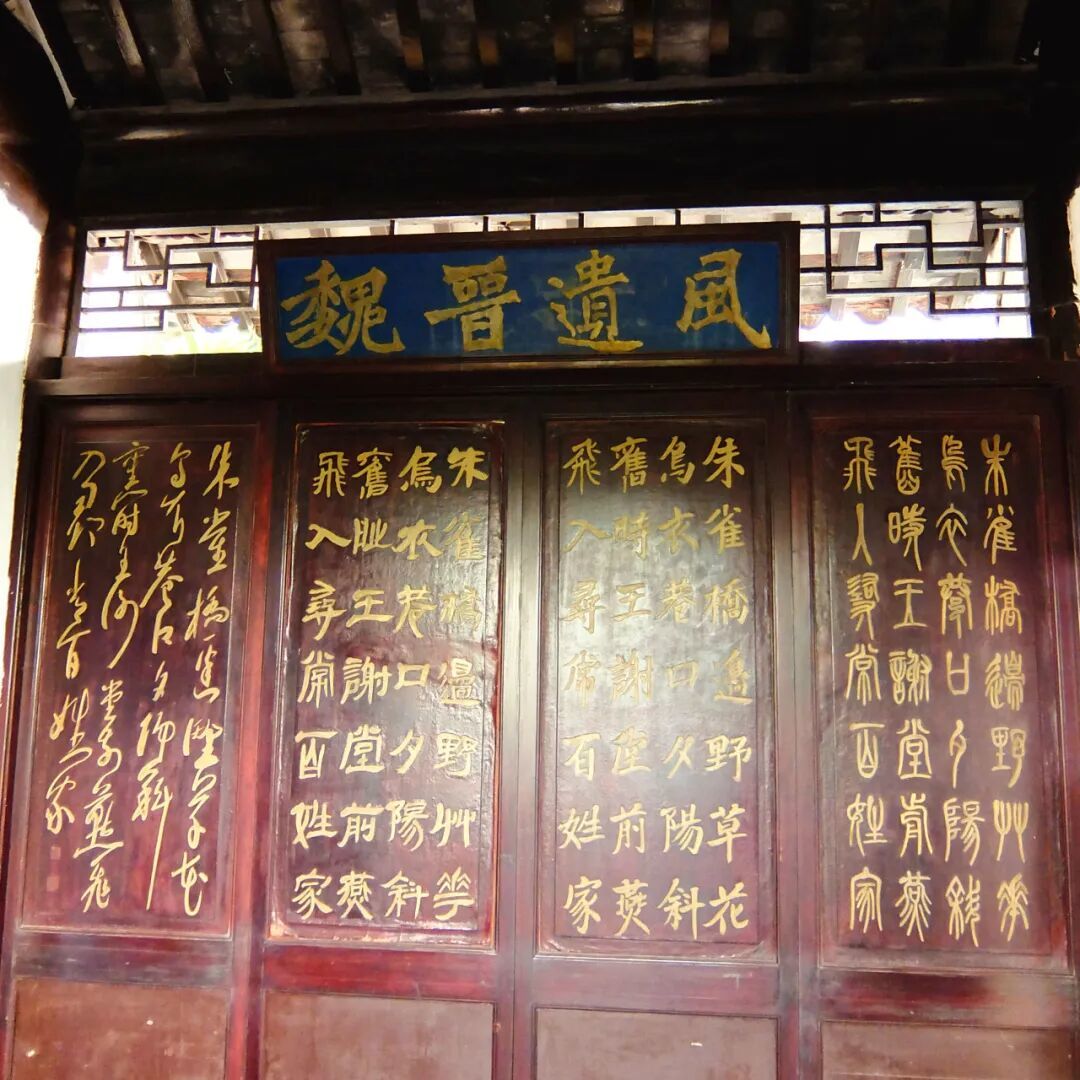 魏晉遺風
朱雀橋邊野艸華
烏衣巷口夕陽斜
舊時王謝堂前燕
飛入尋常百姓家
朱雀橋邊野草花
烏衣巷口夕陽斜
舊時王謝堂前燕
飛入尋常百姓家
朱雀橋邊野艸華
烏衣巷口夕陽斜
舊時王謝堂前燕
飛入尋常百姓家
朱雀橋邊野草花
烏衣巷口夕陽斜
舊時王謝堂前燕飛
入尋常百姓家